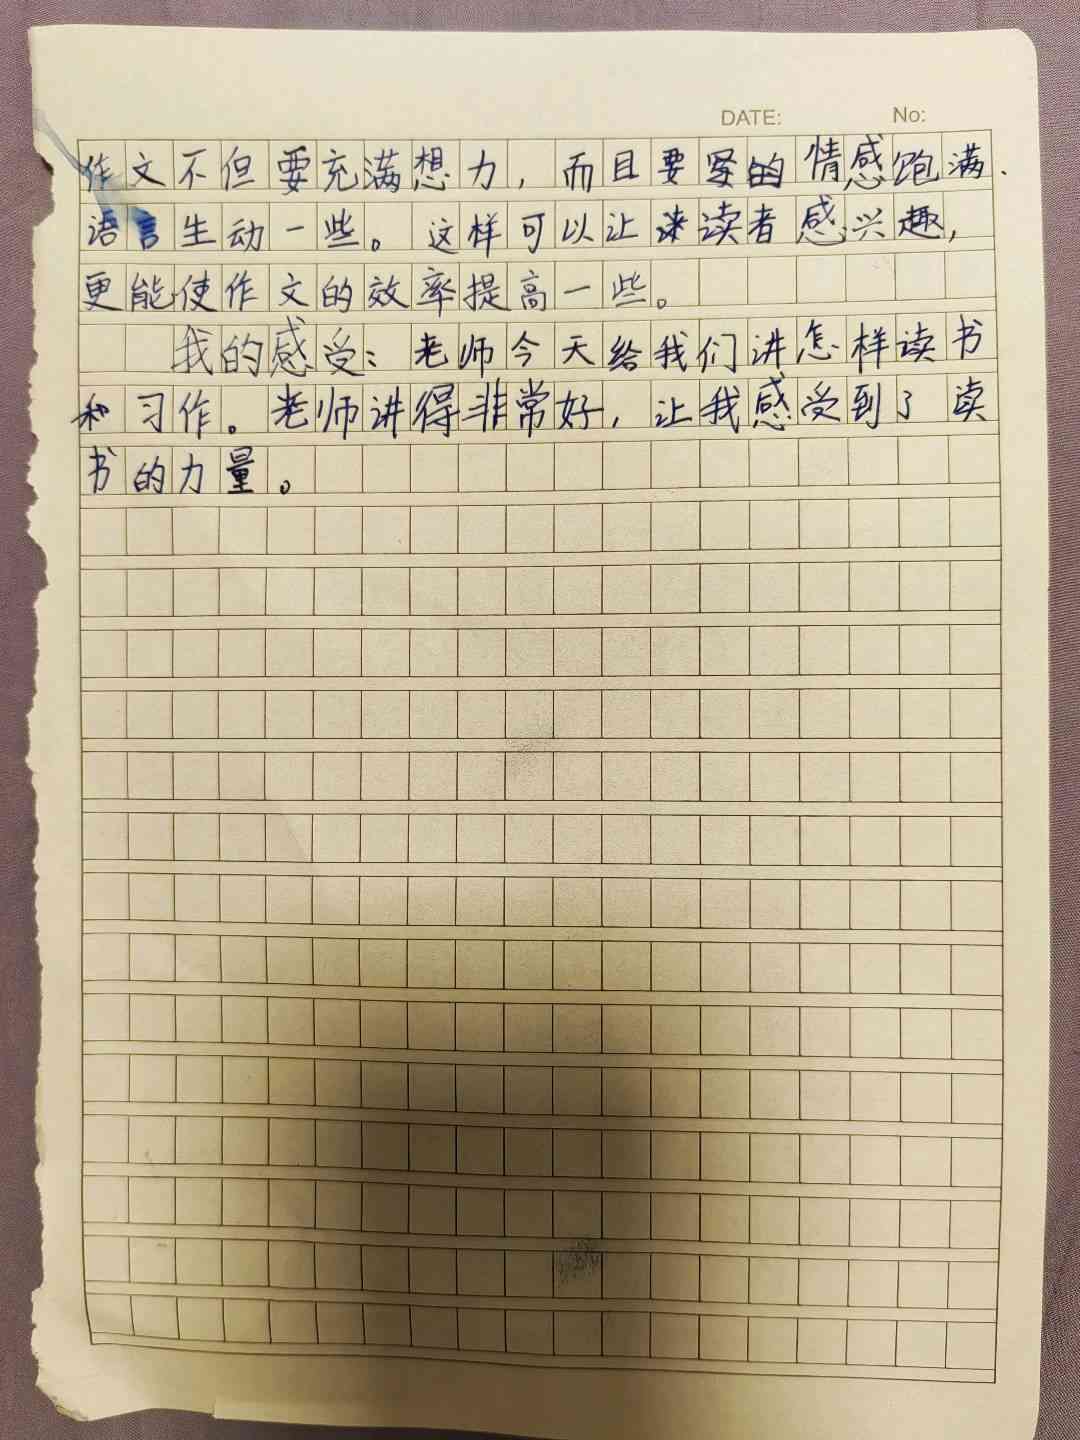 DATE: No:
作文不但要充满想力，而且要写的情感饱满.
语言生动一些。这样可以让读者感兴趣，
更能使作文的效率提高一些。
我的感受：老师今天给我们讲怎样读书
和习作。老师讲得非常好，让我感受到了读
书的力量。